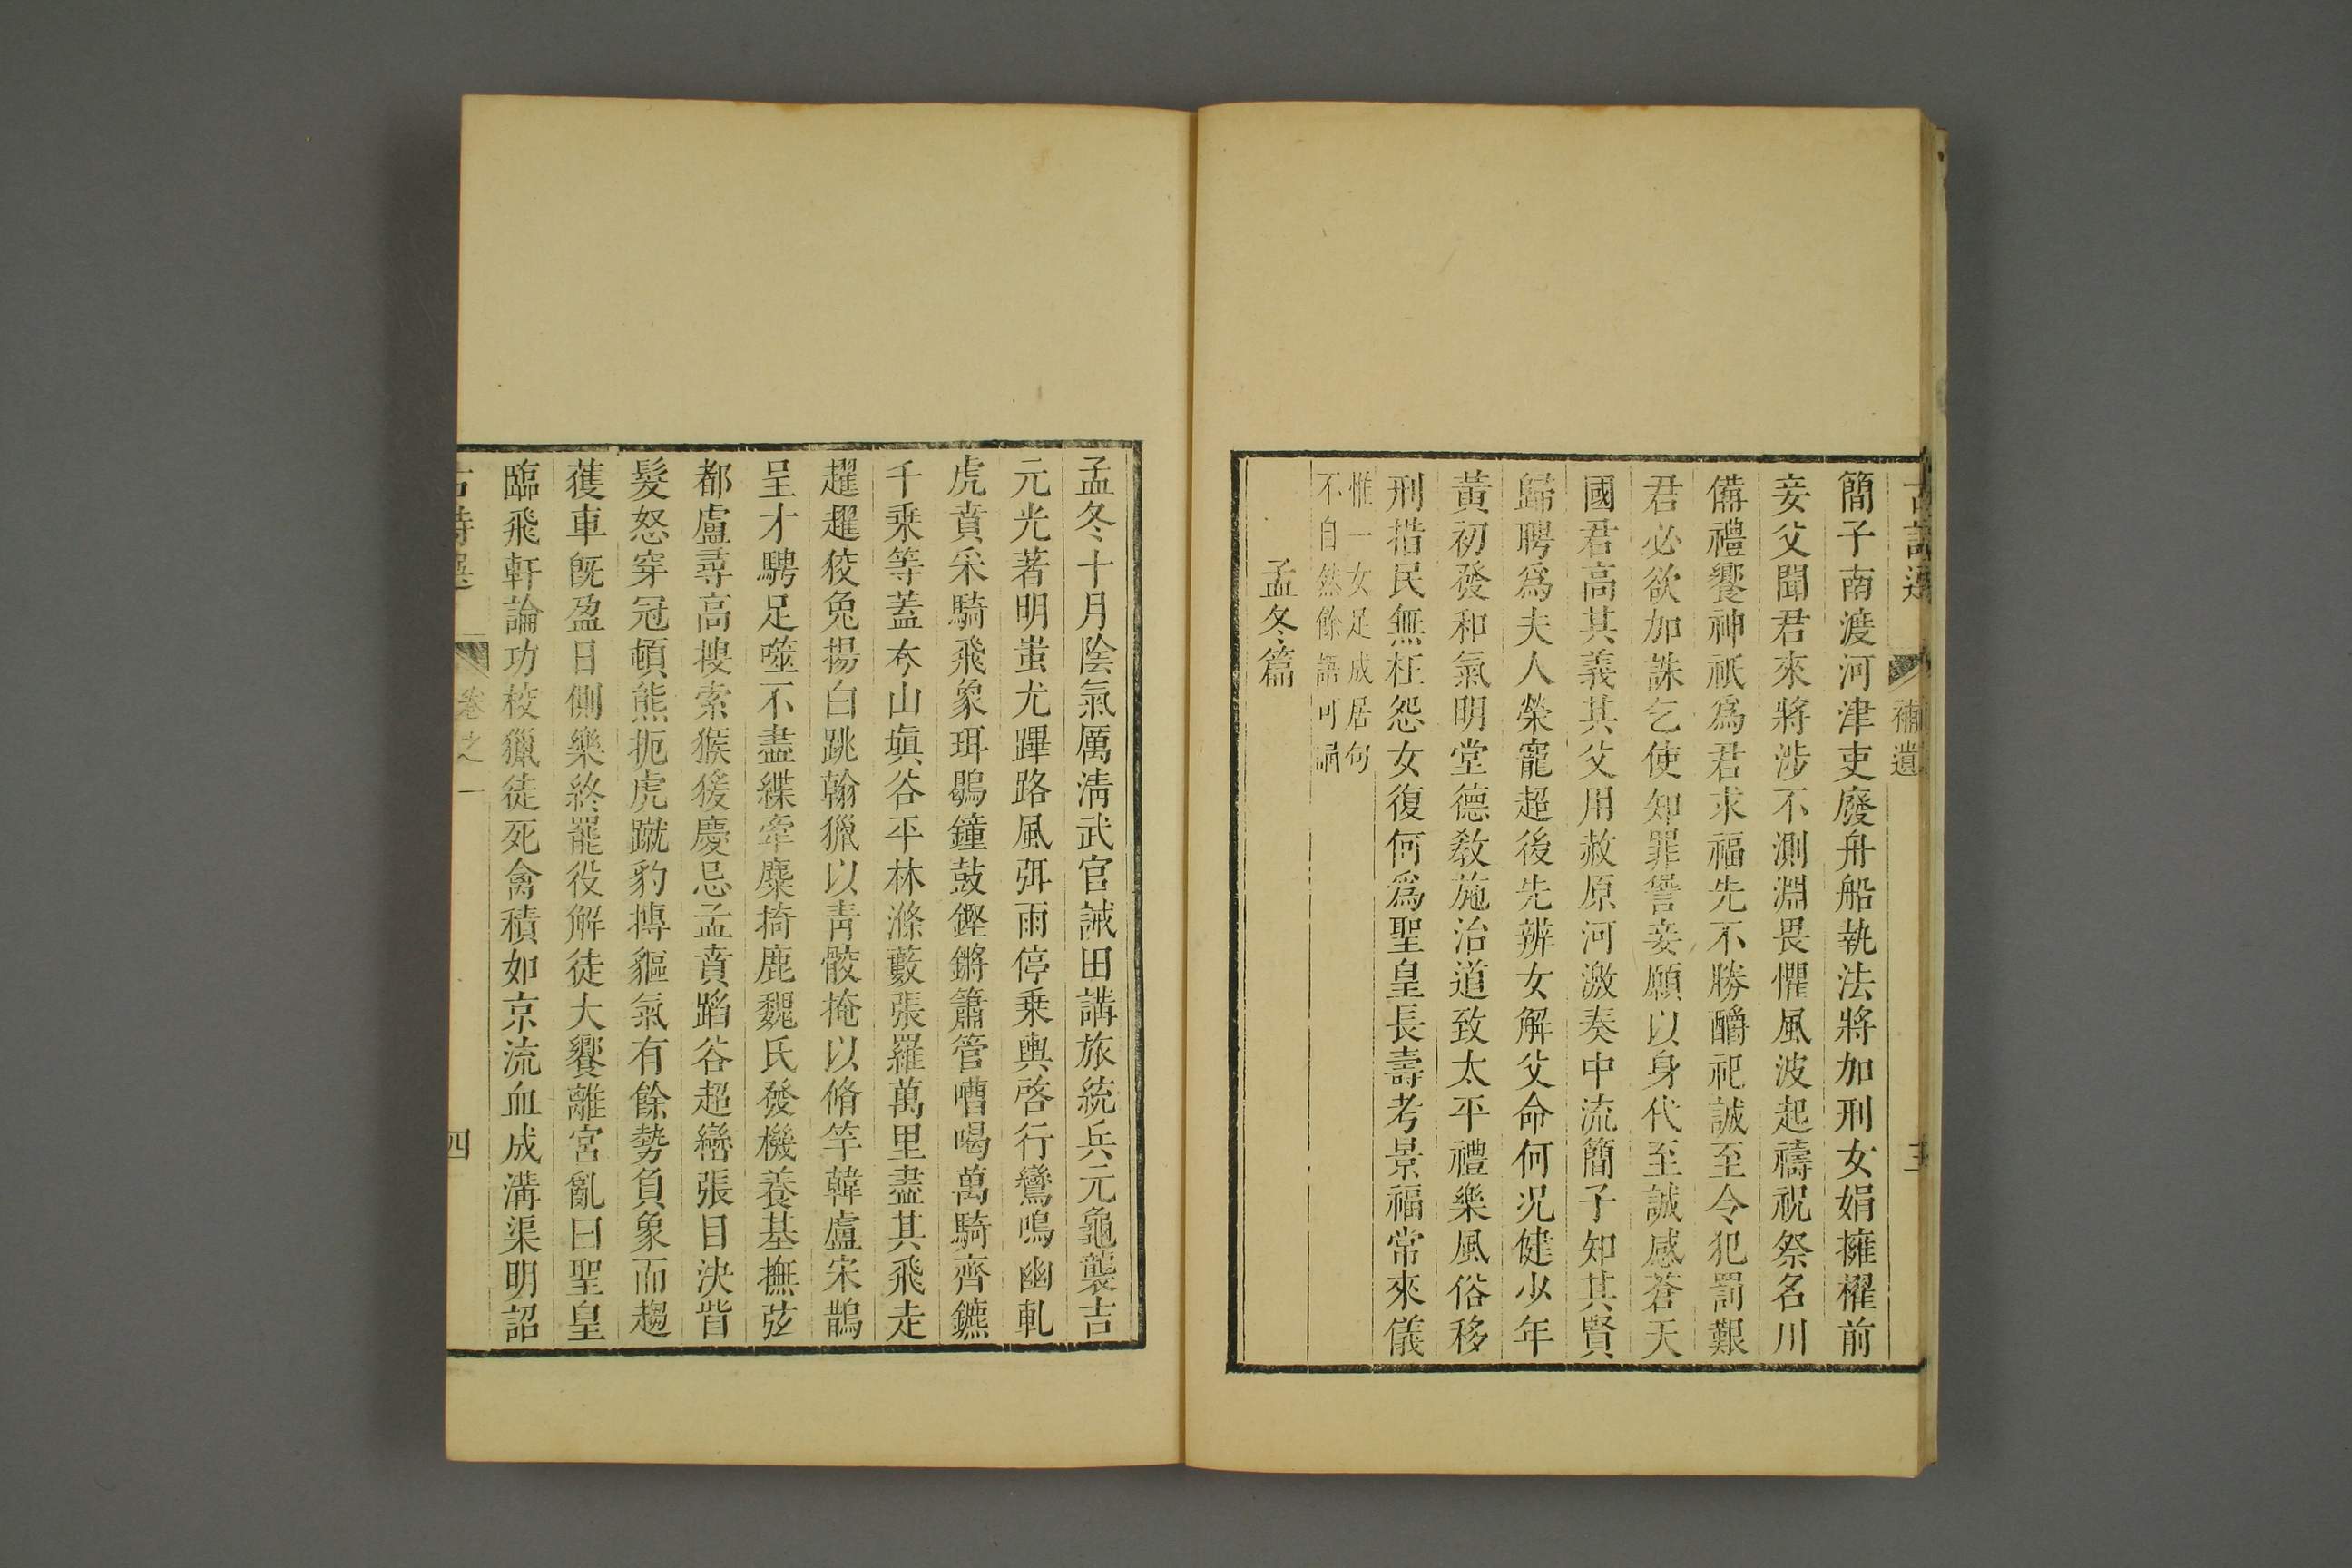 補遺
簡子南渡河津吏廢舟船執法將加刑女娟擁櫂前
妾父聞君來將涉不測淵畏懼風波起禱祝祭名川
備禮饗神祇為君求福先不勝釂祀誠至令犯罰艱
君必欲加誅乞使知罪諐妾願以身代至誠感蒼天
國君高其義其父用赦原河激奏中流簡子知其賢
歸聘爲夫人榮寵超後先辨女解父命何况健少年
黃初發和氣明堂德敎施治道致太平禮樂風俗移
刑措民無枉怨女復何爲聖皇長壽考景福常來儀
惟一女足成居句
不自然餘語可誦
孟冬篇
孟冬十月陰氣厲淸武官誡田講旅統兵元龜襲吉
元光著明蚩尤蹕路風弭雨停乗輿啓行鸞鳴幽軋
虎賁采騎飛象珥鶡鐘鼓鏗鏘簫管嘈喝萬騎齊鑣
千乗等蓋夷山塡谷平林滌藪張羅萬里盡其飛走
趯趯狡兔揚白跳翰獵以靑骹掩以脩竿韓盧宋鵲
呈才騁足噬不盡緤牽麋掎鹿魏氏發機養基撫弦
都盧尋高搜索猴猨慶忌孟賁蹈谷超巒張目決眥
髮怒穿冠頓熊扼虎蹴豹搏貙氣有餘勢負象而趨
獲車旣盈日側樂終罷役解徒大饗離宮亂曰聖皇
臨飛軒論功校獵徒死禽積如京流血成溝渠明詔
卷之一
四